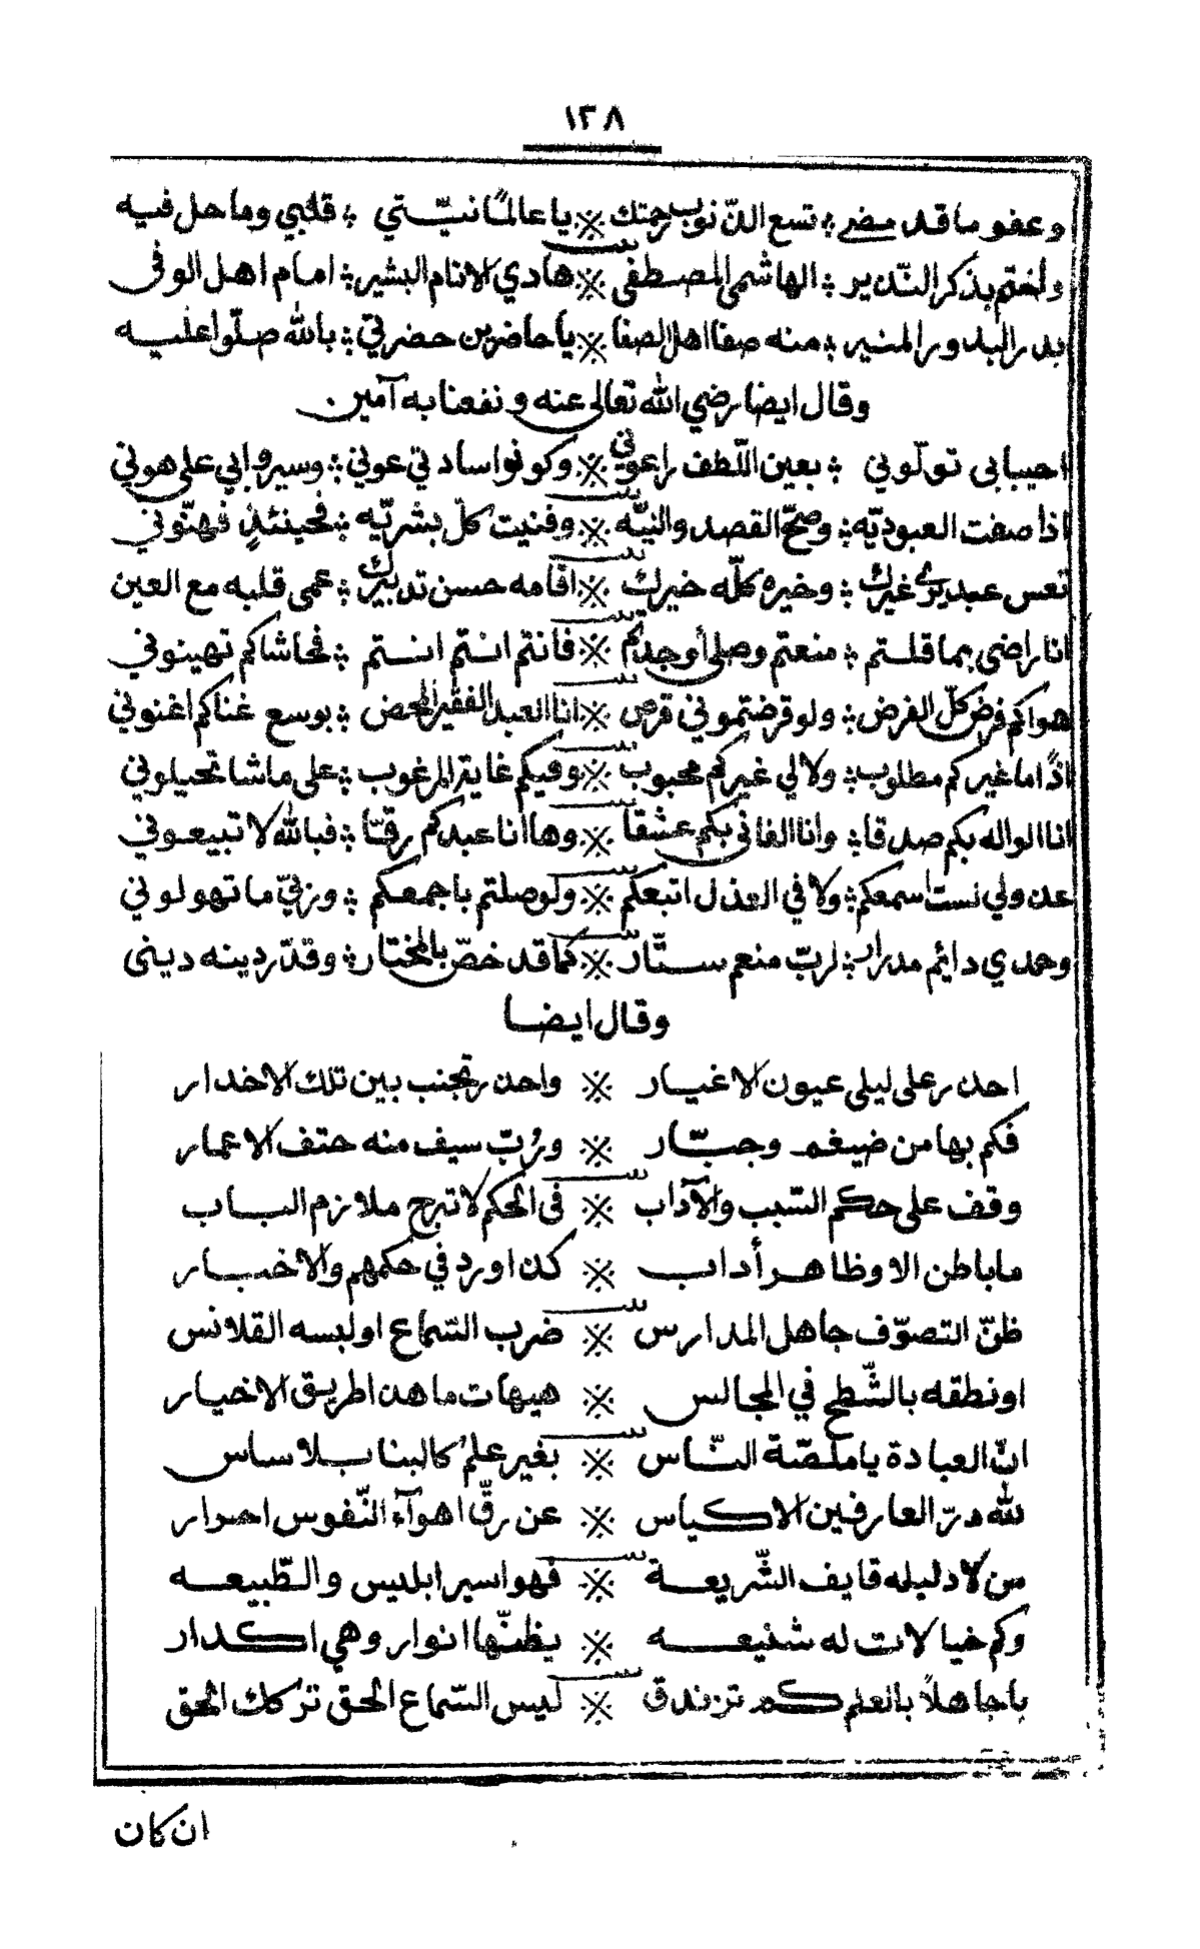 ١٣٨
وعفو ما قد مضى ؞ تسع الذنوب رحمتك ※ يا عالمًا نيّتي ؞ قلبي وما حل فيه
واختم بذكر النّدير ؞ الهاشمي المصطفى ※ هادي الانام البشير ؞ امام اهل الوفى
بدر البدور المنير ؞ منه صفا اهل الصفا ※ يا حاضرين حضرتي ؞ بالله صلّوا عليه
وقال ايضا رضي الله تعالى عنه ونفعنا به آمين
احبابي تولّوني ؞ بعين اللّطف راعوني ※ وكونوا سادتي عوني ؞ وسيروا بي على هوني
اذا صفت العبوديّه ؞ وصحّ القصد والنيّه ※ وفنيت كلّ بشريّه ؞ فحينئذٍ فهنّوني
تعس عبد يرى غيرك ؞ وخيره كلّه خيرك ※ اقامه حسن تدبيرك ؞ عمى قلبه مع العين
انا راضى بما قلتم ؞ منعتم وصلى أو جدتم ※ فانتم انتم انتم ؞ فحاشاكم تهينوني
هواكم فرض كلّ الفرض ؞ ولو قرضتموني قرض ※ انا العبد الفقير المحض ؞ بوسع غناكم اغنوني
اذًا ما غيركم مطلوب ؞ ولا لي غيركم محبوب ※ وفيكم غاية المرغوب ؞ على ما شا تحيلوني
انا الواله بكم صدقا ؞ وانا الفاني بكم عشقا ※ وها انا عبدكم رقّا ؞ فبالله لا تبيعوني
عذولي لست اسمعكم ؞ ولا في العذل اتبعكم ※ ولو صلتم باجمعكم ؞ وزني ما تهولوني
وحمدي دايم مدرار ؞ لربّ منعم ستّار ※ كما قد خصّ بالمختار ؞ وقدّر دينه ديني
وقال ايضا
احذر على ليلى عيون الاغيار ※ واحذر تجنب بين تلك الاخدار
فكم بها من ضيغم وجبّار ※ ورُبّ سيف منه حتف الاعمار
وقف على حكم السّبب والآداب ※ في الحكم لا تبرح ملازم الباب
ما باطن الا وظاهر أداب ※ كذا ورد في حكمهم والاخبار
ظنّ التصوّف جاهل المدارس ※ ضرب السّماع او لبسه القلانس
او نطقه بالشّطح في المجالس ※ هيهات ما هذا طريق الاخيار
انّ العبادة يا ملصّة النّاس ※ بغير علمٍ كالبنا بلا ساس
لله درّ العارفين الاكياس ※ عن رقّ اهوآء النّفوس احرار
من لا دليله قايف الشّريعة ※ فهو اسير ابليس والطّبيعه
وكم خيالات له شنيعه ※ يظنّها انوار وهي اكدار
يا جاهلاً بالعلم كم تزندق ※ ليس السّماع الحق تركك الحق
ان كان